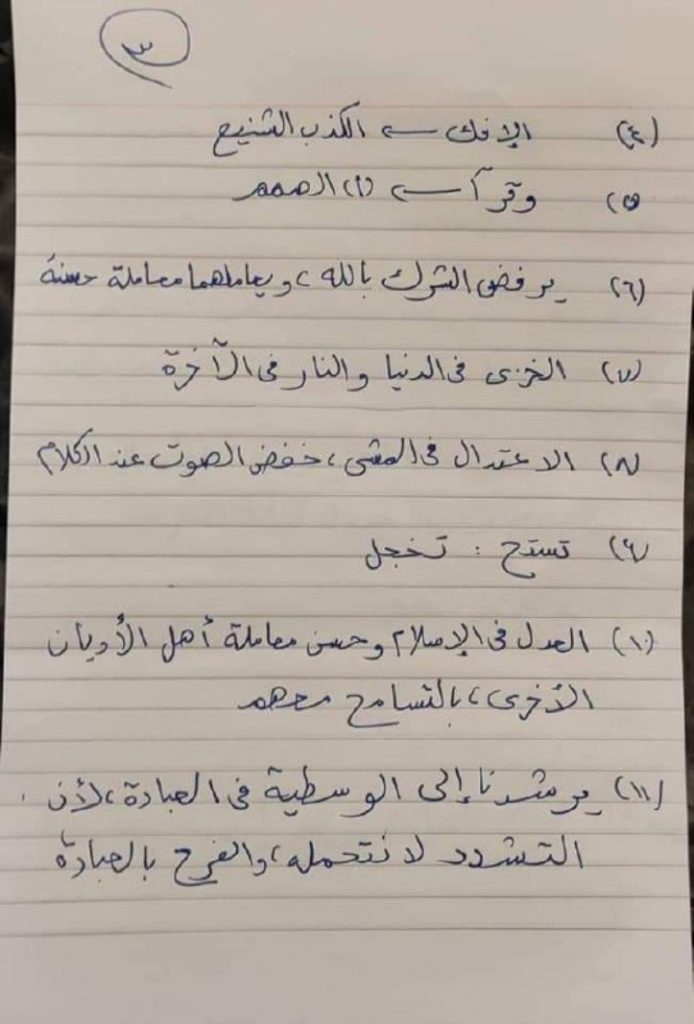 ٣
(٤) الإفك ← الكذب الشنيع
(٥) وقرا ← (أ) الصمم
(٦) يرفض الشرك بالله، ويعاملهما معاملة حسنة
(٧) الخزى فى الدنيا والنار فى الآخرة
(٨) الاعتدال فى المشى، خفض الصوت عند الكلام
(٩) تستح : تخجل
(١٠) العدل فى الإسلام وحسن معاملة أهل الأديان
الأخرى، بالتسامح معهم
(١١) يرشدنا إلى الوسطية فى العبادة، لأن
التشدد لا نتحمله، والفرح بالعبادة